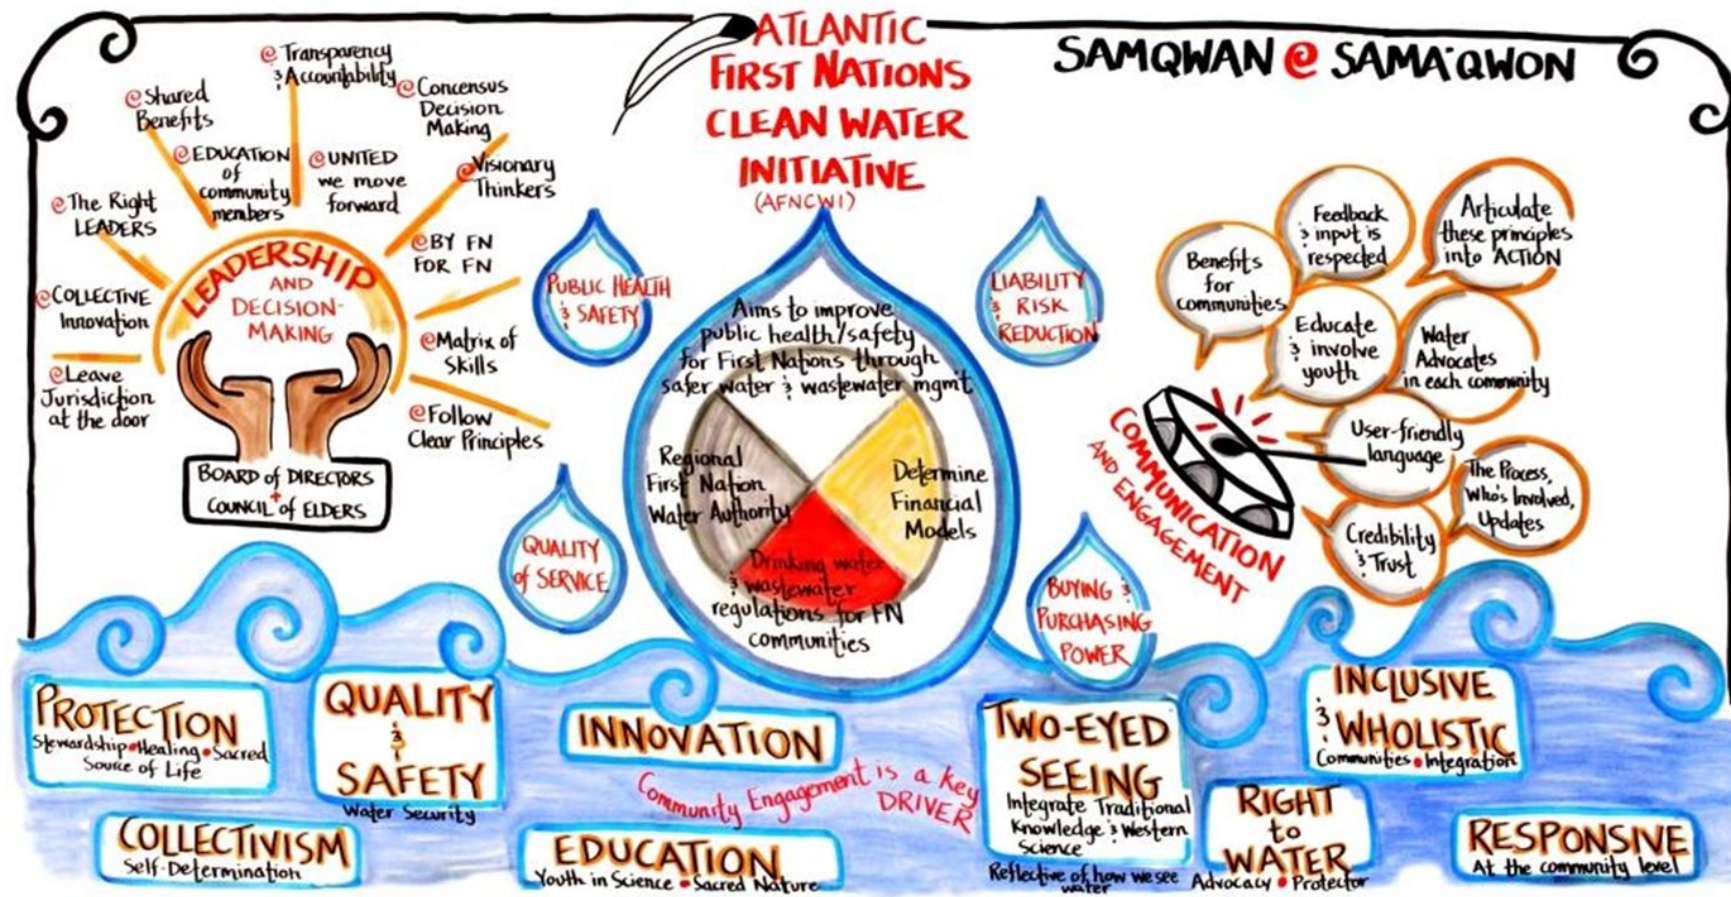 ATLANTIC
FIRST NATIONS
CLEAN WATER
INITIATIVE
(AFNCWI)
SAMQWAN @ SAMA'QWON
@ Transparency
& Accountability
@ Shared
Benefits
@ Concensus
Decision
Making
@ EDUCATION
of
community
members
@ UNITED
we move
forward
@ Visionary
Thinkers
@ The Right
LEADERS
@ BY FN
FOR FN
@ COLLECTIVE
Innovation
@ Matrix of
Skills
@ Leave
Jurisdiction
at the door
@ Follow
Clear Principles
LEADERSHIP
AND
DECISION-
MAKING
BOARD of DIRECTORS
+
COUNCIL of ELDERS
PUBLIC HEALTH
& SAFETY
QUALITY
of SERVICE
Aims to improve
public health/safety
for First Nations through
safer water & wastewater mgmt
Regional
First Nation
Water Authority
Determine
Financial
Models
Drinking water
& wastewater
regulations for FN
communities
LIABILITY
& RISK
REDUCTION
BUYING &
PURCHASING
POWER
COMMUNICATION
AND ENGAGEMENT
Benefits
for
communities
Feedback
& input is
respected
Articulate
these principles
into ACTION
Educate
& involve
youth
Water
Advocates
in each community
User-friendly
language
The Process,
Who's Involved,
Updates
Credibility
& Trust
PROTECTION
Stewardship • Healing • Sacred
Source of Life
QUALITY
&
SAFETY
Water Security
COLLECTIVISM
Self-Determination
INNOVATION
Community Engagement is a key
DRIVER
EDUCATION
Youth in Science • Sacred Nature
TWO-EYED
SEEING
Integrate Traditional
Knowledge & Western
Science
Reflective of how we see
water
RIGHT
to
WATER
Advocacy • Protector
INCLUSIVE
& WHOLISTIC
Communities • Integration
RESPONSIVE
At the community level